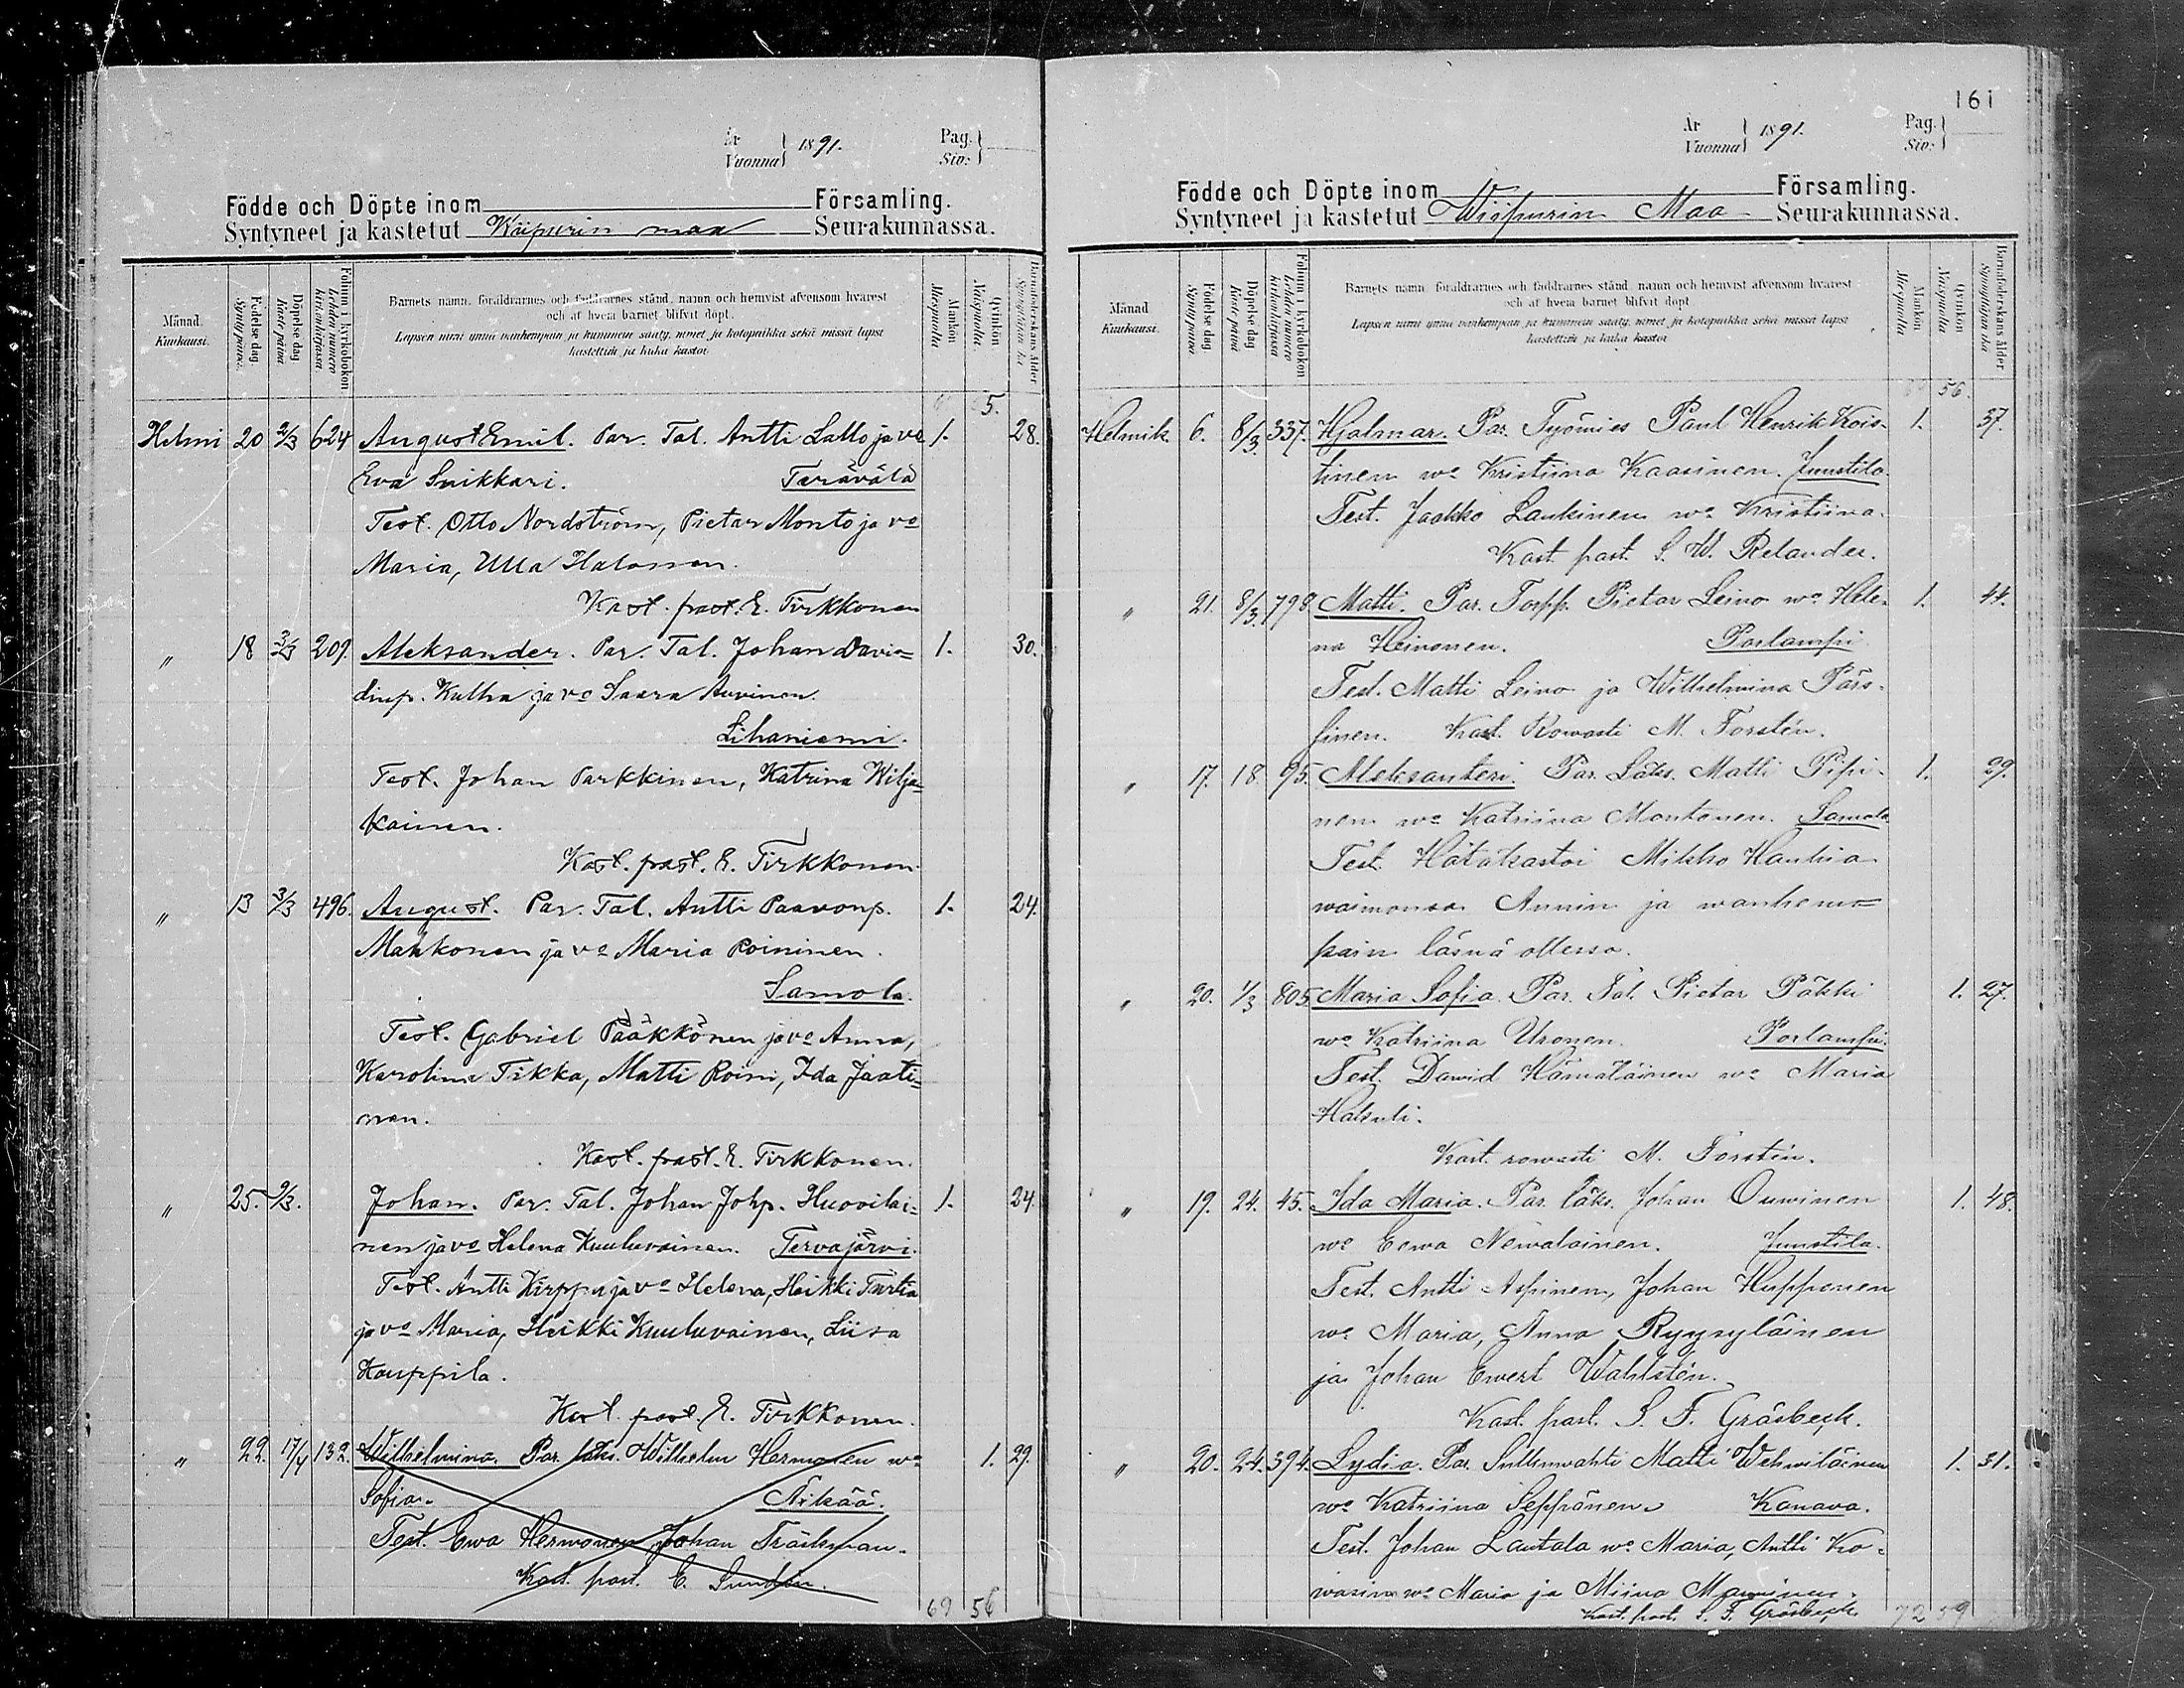 År
Vuonna 1891.
Pag.
Siv:
Födde och Döpte inom Församling.
Syntyneet ja kastetut Wiipurin maa Seurakunnassa.
Månad.
Kuukausi.
Födelse dag.
Syntypäivä.
Döpelse dag
Kaste päivä
Folium i kyrkobokon
Lehden numero
kirkonkirjassa
Barnets namn, föräldrarnes och faddrarnes stånd, namn och hemvist äfvensom hvarest
och af hvem barnet blifvit döpt.
Lapsen nimi ynnä vanhempain ja kummein sääty, nimet ja kotopaikka sekä missä lapsi
kastettiin ja kuka kastoi
Mankön
Miespuolta
Qvinkön
Naispuolta.
Barnaföderskans ålder
Synnyttäjän ikä
5.
Helmi 20 2/3 624 August Emil. Par. Tal. Antti Lallo ja vo 1. 28.
Eva Suikkari. Terävälä
Test. Otto Nordström, Pietar Monto ja vo
Maria, Ulla Halonen.
Kast. past. E. Tirkkonen
" 18 3/3 209. Aleksander. Par. Tal. Johan Davi=
dinp. Kultra ja vo Saara Auvinen. 1. 30.
Lihaniemi.
Test. Johan Parkkinen, Katrina Wilja=
kainen.
Kast. past. E. Tirkkonen.
" 13 3/3 496. August. Par. Tal. Antti Paavonp. 1. 24.
Mahkonen ja vo Maria Roininen.
Samola.
Test. Gabriel Pääkkönen ja vo Anna,
Karolina Tikka, Matti Roini, Ida Jaati=
nen.
Kast. past. E. Tirkkonen.
" 25. 9/3. Johan. Par. Tal. Johan Johp. Huovilai= 1. 24.
nen ja vo Helena Kuuluvainen. Tervajärvi.
Test. Antti Kirppu ja vo Helena, Heikki Turtia
ja vo Maria, Heikki Kuuluvainen, Liisa
Kauppila.
Kast. past. E. Tirkkonen.
" 22. 17/4 132. Wilhelmina. Par. läks. Wilhelm Hermonen wo 1. 29.
Sofia. Alkää.
Test. Ewa Hermonen, Johan Träskman.
Kast. past. E. Sundén.
69 56
161
År
Vuonna 1891.
Pag.
Siv:
Födde och Döpte inom Församling.
Syntyneet ja kastetut Wiipurin Maa Seurakunnassa.
Månad
Kuukausi.
Födelse dag
Synty päivä
Döpelse dag
Kaste päivä
Folium i kyrkobokon
Lehden numero
kirkonkirjassa
Barnets namn, föräldrarnes och faddrarnes stånd, namn och hemvist äfvensom hvarest
och af hvem barnet blifvit döpt.
Lapsen nimi ynnä vanhempain ja kummein sääty, nimet ja kotopaikka sekä missä lapsi
kastettiin ja kuka kastoi
Mankön
Miespuolta
Qvinkön
Naispuolta
Barnaföderskans ålder
Synnyttäjän ikä
56.
Helmik. 6. 8/3. 337. Hjalmar. Par. Työmies Paul Henrik Krois= 1. 37.
tinen wo Kristiina Kaasinen. Juustila.
Test. Jaakko Laukinen wo Kristiina.
Kast. past. S. W. Relander.
" 21. 8/3. 798. Matti. Par. Torpp. Pietar Leino wo Hele= 1. 44.
na Heinonen. Porlampi
Test. Matti Leino ja Wilhelmina Pärs=
sinen. Kast. Rowasti M. Forstén.
" 17. 18. 95. Aleksanteri. Par. Läks. Matti Pipi= 1. 29.
nen wo Katriina Montonen. Samola
Test. Hätäkastoi Mikko Haukia
waimonsa Annin ja wanhem=
pain läsnä ollessa.
" 20. 1/3 805. Maria Sofia. Par. Tal. Pietar Päkki 1. 27.
wo Katriina Uronen. Porlampi.
Test. Dawid Hämäläinen wo Maria
Hatsuli.
Kast. rowasti M. Forstén.
" 19. 24. 45. Ida Maria. Par. läks. Johan Ouwinen 1. 48.
wo Eewa Newalainen. Juustila.
Test. Antti Aspinen, Johan Hupponen
wo Maria, Anna Ryysyläinen
ja Johan Ewert Wahlstén.
Kast. past. S. F. Gräsbeck.
" 20. 24. 394. Lydia. Par. Sulkuwahti Matti Wehwiläinen 1. 31.
wo Katriina Seppänen. Kanava.
Test. Johan Lautala wo Maria, Antti Ko=
wasin wo Maria ja Miina Manninen.
Kast. past. S. F. Gräsbeck
72 59